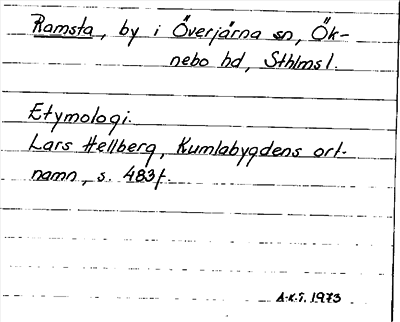 Ramsta, by i Överjärna sn, Ök-
nebo hd, Sthlms l.
Etymologi.
Lars Hellberg, Kumlabygdens ort-
namn, s. 483f.
A.K.T. 1973